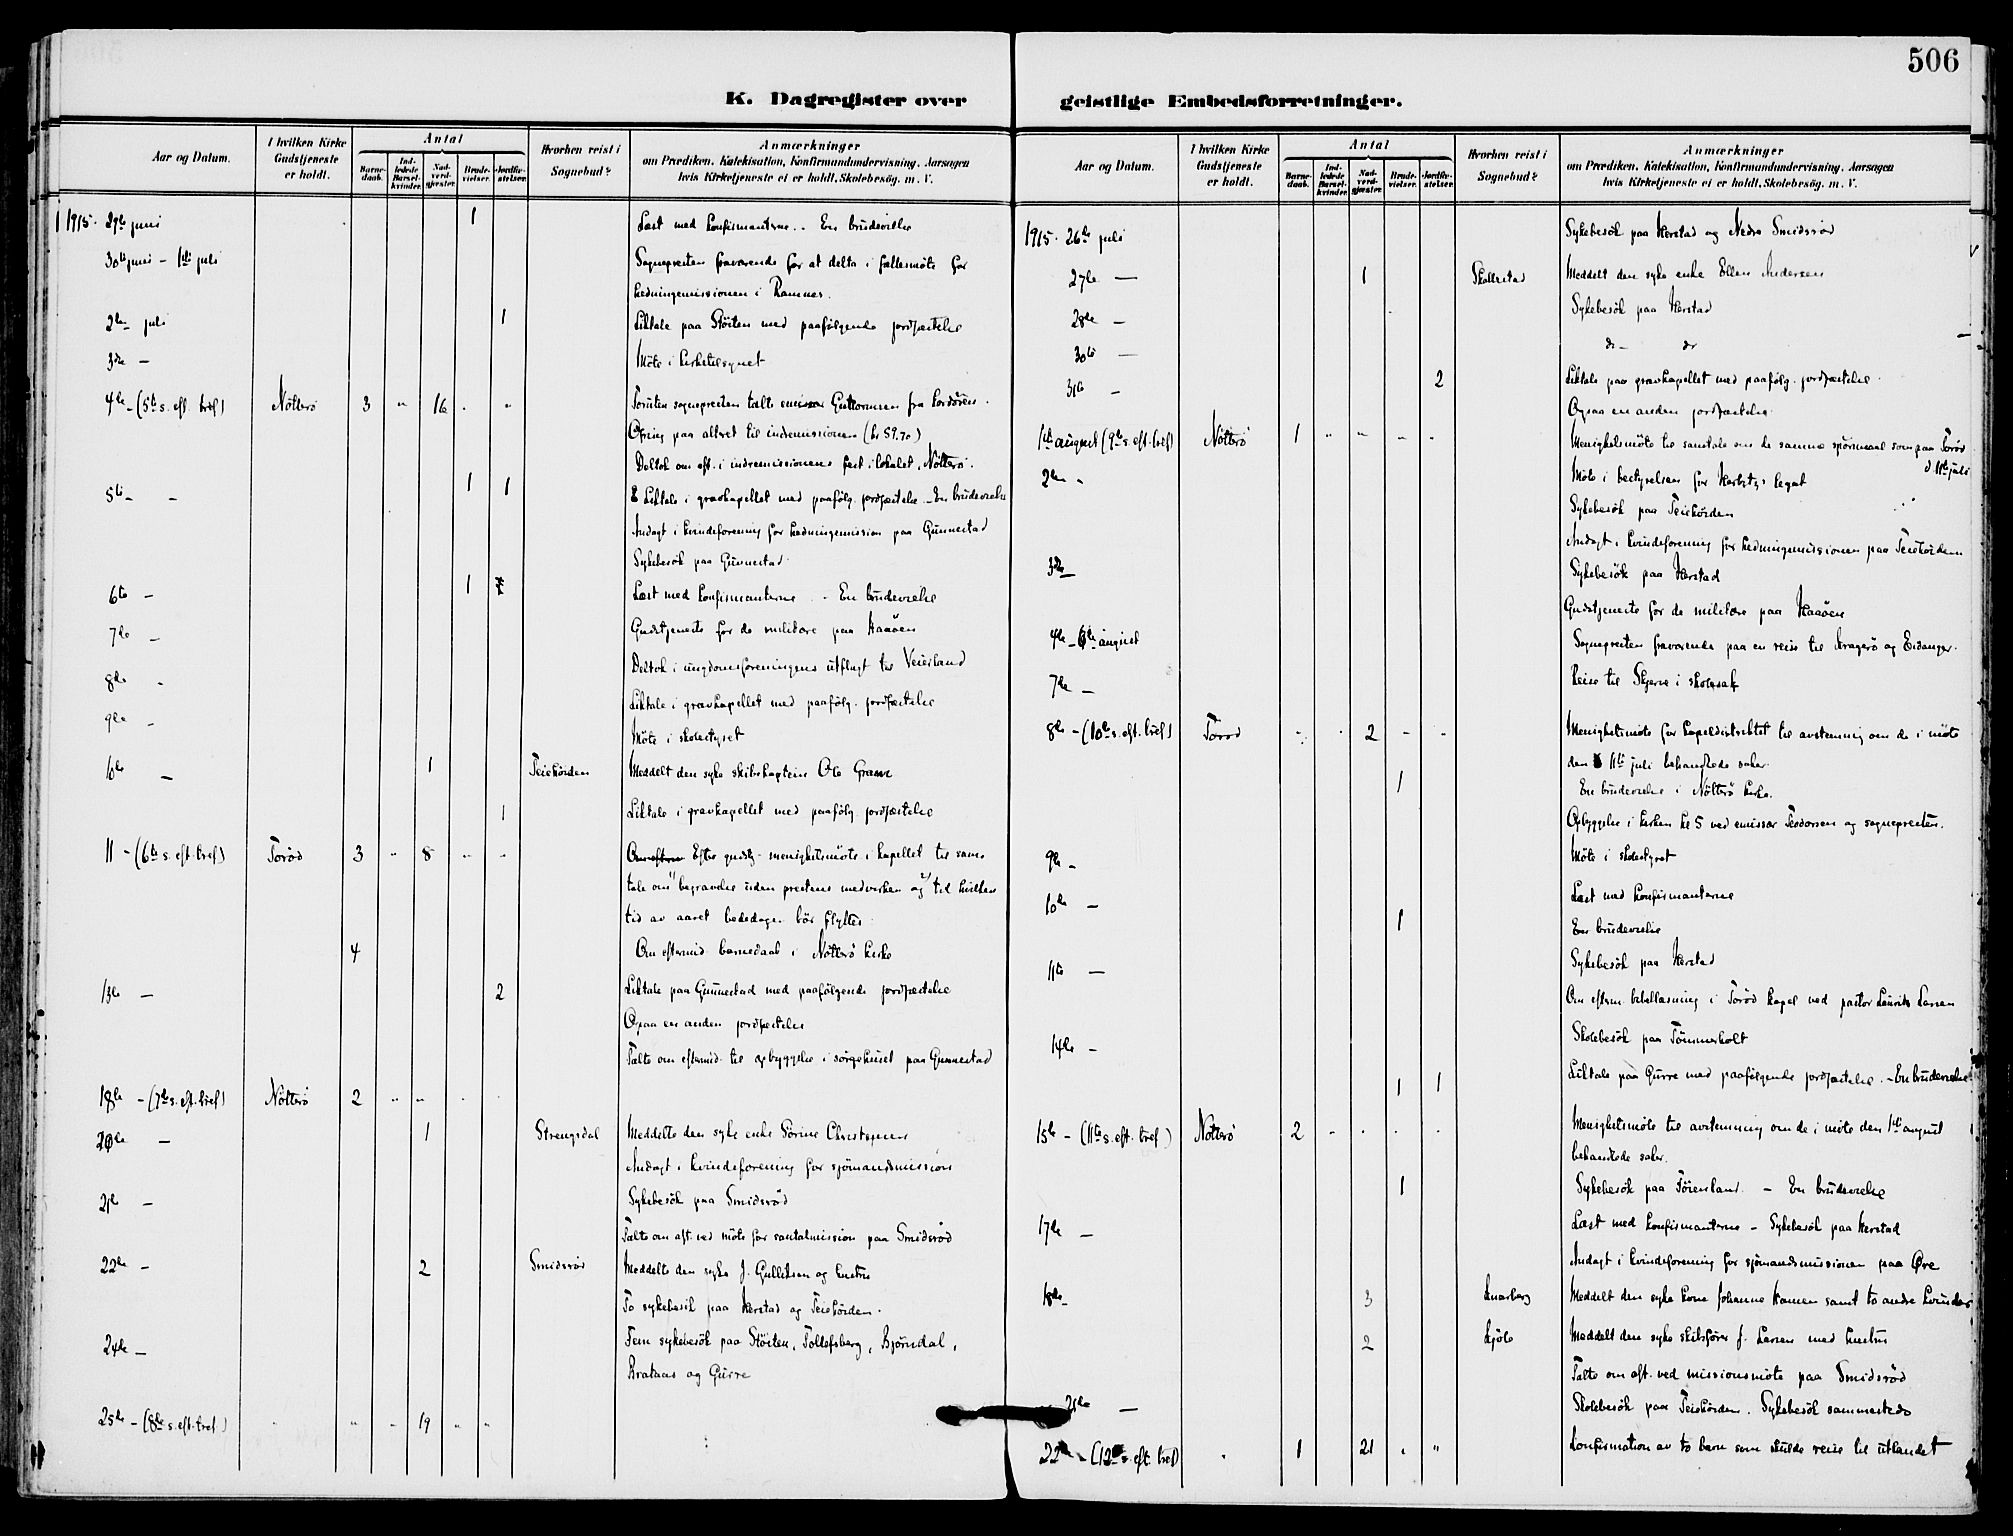 506
K. Dagregister over geistlige Embedsforretninger.
Aar og Datum. I hvilken Kirke Gudstjeneste er holdt. Antal Barnedaab. Indledede Barselkvinder. Nadverdgjæster. Brudevielser. Jordfæstelser. Hvorhen reist i Sognebud? Anmærkninger om Prædiken, Katekisation, Konfirmandundervisning, Aarsagen hvis Kirketjeneste ei er holdt, Skolebesög, m. V.
1915. 29de juni 1 Læst med konfirmanterne. - En brudevielse
30te juni - 1ste juli Sognepresten fraværende for at delta i fællesmöte for
hedningemissionen i Ramnes.
2den juli 1 Liktale paa Stöiten med paafölgende jordfæstelse
3die - Möte i kirketilsynet
4de - (5te s. eft. tref) Nötterö 3 " 16 . " Foruten sognepresten talte emissær Guttormsen fra
Ofring paa altret til indremissionen (kr 59.70)
Deltok om eft. i indremissionens fest i lokalet, Nötterö.
5te - - 1 1 Liktale i gravkapellet med paafölg. jordfæstelse - En brudevielse
Andagt i kvindeforening for hedningemission paa Gunnestad
Sykebesök paa Gunnestad
6te - 1 Læst med konfirmanterne - En brudevielse
7de - Gudstjeneste for de militære paa Haaöen
Deltok i ungdomsforeningens utflugt til Veierland
8de - Liktale i gravkapellet med paafölg. jordfæstelse
9de - Möte i skolestyret
10de - 1 Teiehöiden Meddelt den syke skibskaptein Ole
1 Liktale i gravkapellet med paafölg. jordfæstelse
11 - (6te s. eft. tref) Toröd 3 " 8 " " Efter gudstj. menighetsmöte i kapellet til sam-
tale om 1) begravelse uden prestens medvirken og 2) til hvilken
tid av aaret bededagen bör flyttes
4 Om eftermid. barnedaab i Nötterö kirke
13de - 2 Liktale paa Gunnestad med paafölgende jordfæstelse
Ogsaa en anden jordfæstelse
Talte om eftermid. til opbyggelse i sörgehuset paa Gunnestad
18de - (7de s. eft. tref) Nötterö 2 " " . .
20de - 1 Strengsdal Meddelte den syke enke Sörine
Andagt i kvindeforening for sjömandsmission
21de - Sykebesök paa Smidsröd
Talte om aft. ved möte for santalmission paa Smidsröd
22de - 2 Smidsröd Meddelte den syke J. Gulliksen og hustru
To sykebesök paa Herstad og Teiehöiden.
24de - Fem sykebesök paa Stöiten, Tollefsberg, Bjørndal,
Brataas og Gurre
25de - (8de s. eft. tref) " " " 19 " "
Aar og Datum. I hvilken Kirke Gudstjeneste er holdt. Antal Barnedaab. Indledede Barselkvinder. Nadverdgjæster. Brudevielser. Jordfæstelser. Hvorhen reist i Sognebud? Anmærkninger om Prædiken, Katekisation, Konfirmandundervisning, Aarsagen hvis Kirketjeneste ei er holdt, Skolebesög, m. V.
1915. 26de juli Sykebesök paa Herstad og Nedre Smidsröd
27de - 1 Skallestad Meddelt den syke enke Ellen Andersen
28de - Sykebesök paa Herstad
30te - do - do
31te - 2 Liktale paa gravkapellet med paafölg. jordfæstelse.
Ogsaa en anden jordfæstelse
1ste august (9de s. eft. tref) Nötterö 1 " " " " Menighetsmöte til samtale om de samme spörsmaal som paa Toröd
d 11te juli
2den " Möte i bestyrelsen for legat
Sykebesök paa Teiehöiden
Andagt i kvindeforening for hedningemissionen paa Teiehöiden
3die - Sykebesök paa Herstad
Gudstjeneste for de militære paa Haaöen
4de - 6te august Sognepresten fraværende paa en reise til Kragerö og Eidanger.
7de - Reise til i skolesak
8de - (10de s. eft. tref) Torod " . 2 " " Menighetsmöte for kapeldistriktet til avstemning om de i möte
den 11te juli behandlede saker.
1 En brudevielse i Nötterö kirke.
Opbyggelse i kirken kl 5 ved emissær Teodorsen og sognepresten.
9de - Möte i skolestyret
10de - Læst med konfirmanterne
1 En brudevielse
11te - Sykebesök paa Herstad
Om efterm. bibellæsning i Toröd kapel ved pastor Laurits Larsen
14de - Skolebesök paa Tömmerholt
1 1 Liktale paa Gurre med paafölgende jordfæstelse. - En brudevielse
15de - (11te s. eft. tref) Nötterö 2 . . . . Menighetsmöte til avstemning om de i möte den 1ste august
behandlede saker.
1 Sykebesök paa - En brudevielse
17de - Læst med konfirmanterne - Sykebesök paa Herstad
Andagt i kvindeforening for sjömandsmissionen paa Øre
18de - 3 Knarberg Meddelt den syke kone Johanne Hansen samt to andre kvinder
2 Kjöle Meddelt den syke skibsförer J. Larsen med hustru
Talte om aft. ved missionsmöte paa Smidsröd
21de - Skolebesök paa Teiehöiden. Sykebesök sammesteds
22de - (12te s. eft. tref) " 1 21 " " Konfirmation av to barn som skulde reise til utlandet